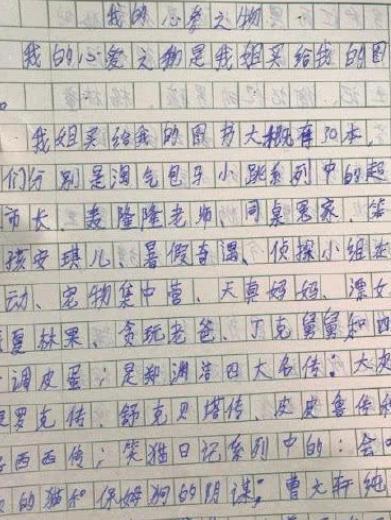 我的心爱之物
我的心爱之物是我姐买给我的图
。
我姐买给我的图书大概有30本,
们分别是淘气包马小跳系列中的超
市长、轰隆隆老师、同桌冤家、笨
孩安琪儿、暑假奇遇、侦探小组在
动、宠物集中营、天真妈妈、漂女
夏林果、贪玩老爸、丁克舅舅和四
调皮蛋;是郑渊洁四大名传:大皮
罗克传、舒克贝塔传、皮皮鲁传
西西传;笑猫日记系列中的:会
的猫和保姆狗的阴谋;曹文轩纯